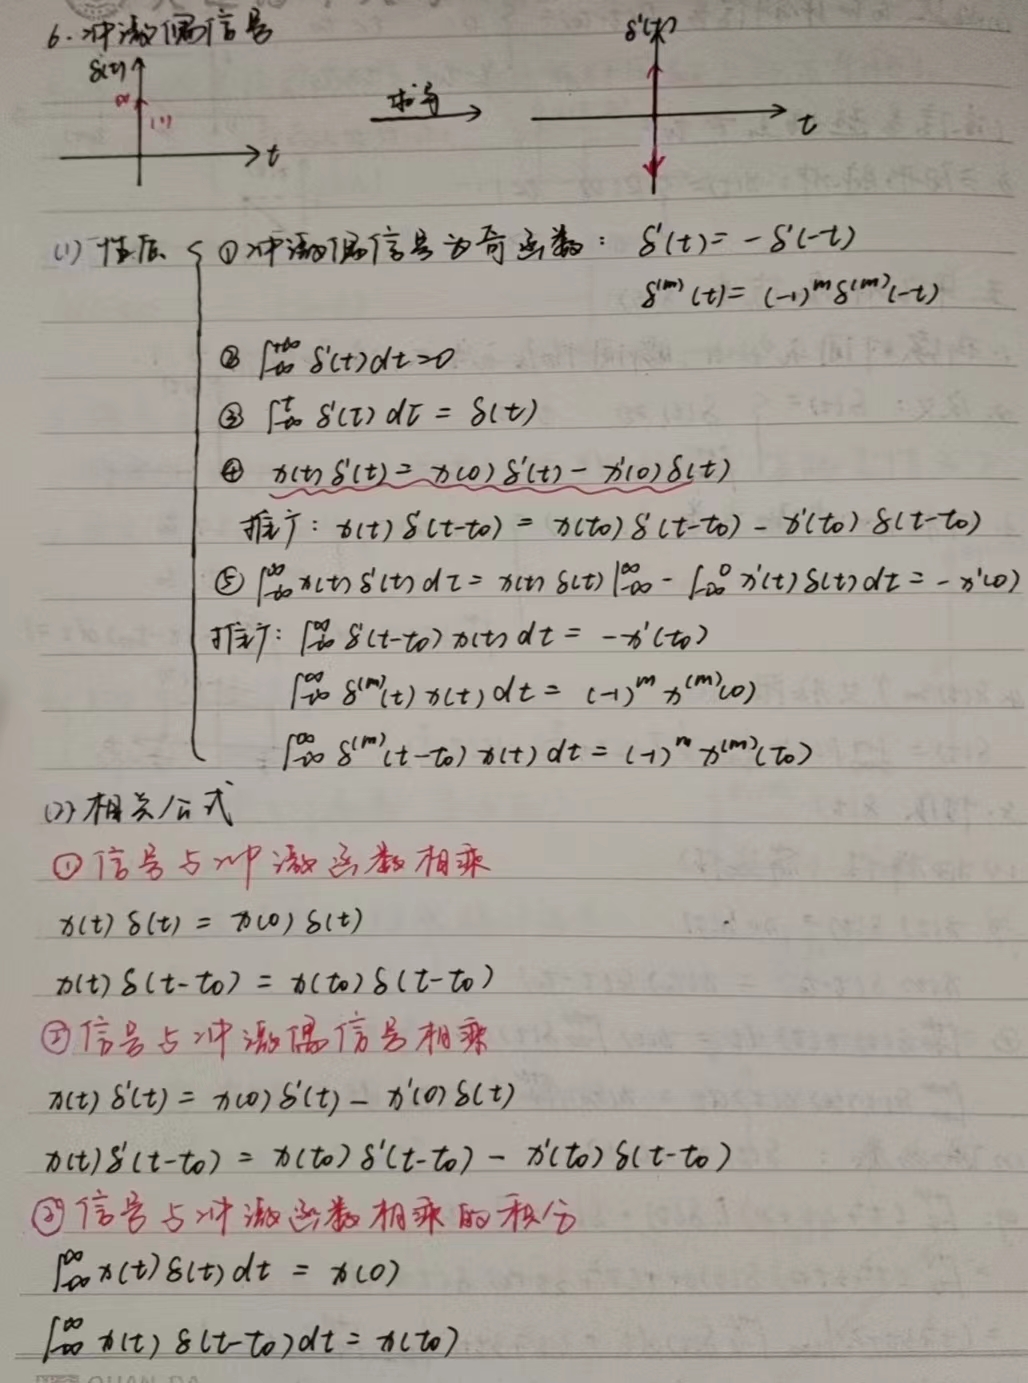 6. 冲激偶信号
δ(t) (1) t
求导
δ'(t) t
(1) 性质 { ① 冲激偶信号为奇函数: δ'(t) = -δ'(-t)
δ^(m)(t) = (-1)^m δ^(m)(-t)
② ∫_{-∞}^{+∞} δ'(t) dt = 0
③ ∫_{-∞}^{t} δ'(τ) dτ = δ(t)
④ x(t) δ'(t) = x(0) δ'(t) - x'(0) δ(t)
推广: x(t) δ'(t-t₀) = x(t₀) δ'(t-t₀) - x'(t₀) δ(t-t₀)
⑤ ∫_{-∞}^{∞} x(t) δ'(t) dτ = x(t) δ(t) |_{-∞}^{∞} - ∫_{-∞}^{0} x'(t) δ(t) dt = -x'(0)
推广: ∫_{-∞}^{∞} δ'(t-t₀) x(t) dt = -x'(t₀)
∫_{-∞}^{∞} δ^(m)(t) x(t) dt = (-1)^m x^(m)(0)
∫_{-∞}^{∞} δ^(m)(t-t₀) x(t) dt = (-1)^m x^(m)(t₀)
(2) 相关公式
① 信号与冲激函数相乘
x(t) δ(t) = x(0) δ(t)
x(t) δ(t-t₀) = x(t₀) δ(t-t₀)
② 信号与冲激偶信号相乘
x(t) δ'(t) = x(0) δ'(t) - x'(0) δ(t)
x(t) δ'(t-t₀) = x(t₀) δ'(t-t₀) - x'(t₀) δ(t-t₀)
③ 信号与冲激函数相乘的积分
∫_{-∞}^{∞} x(t) δ(t) dt = x(0)
∫_{-∞}^{∞} x(t) δ(t-t₀) dt = x(t₀)